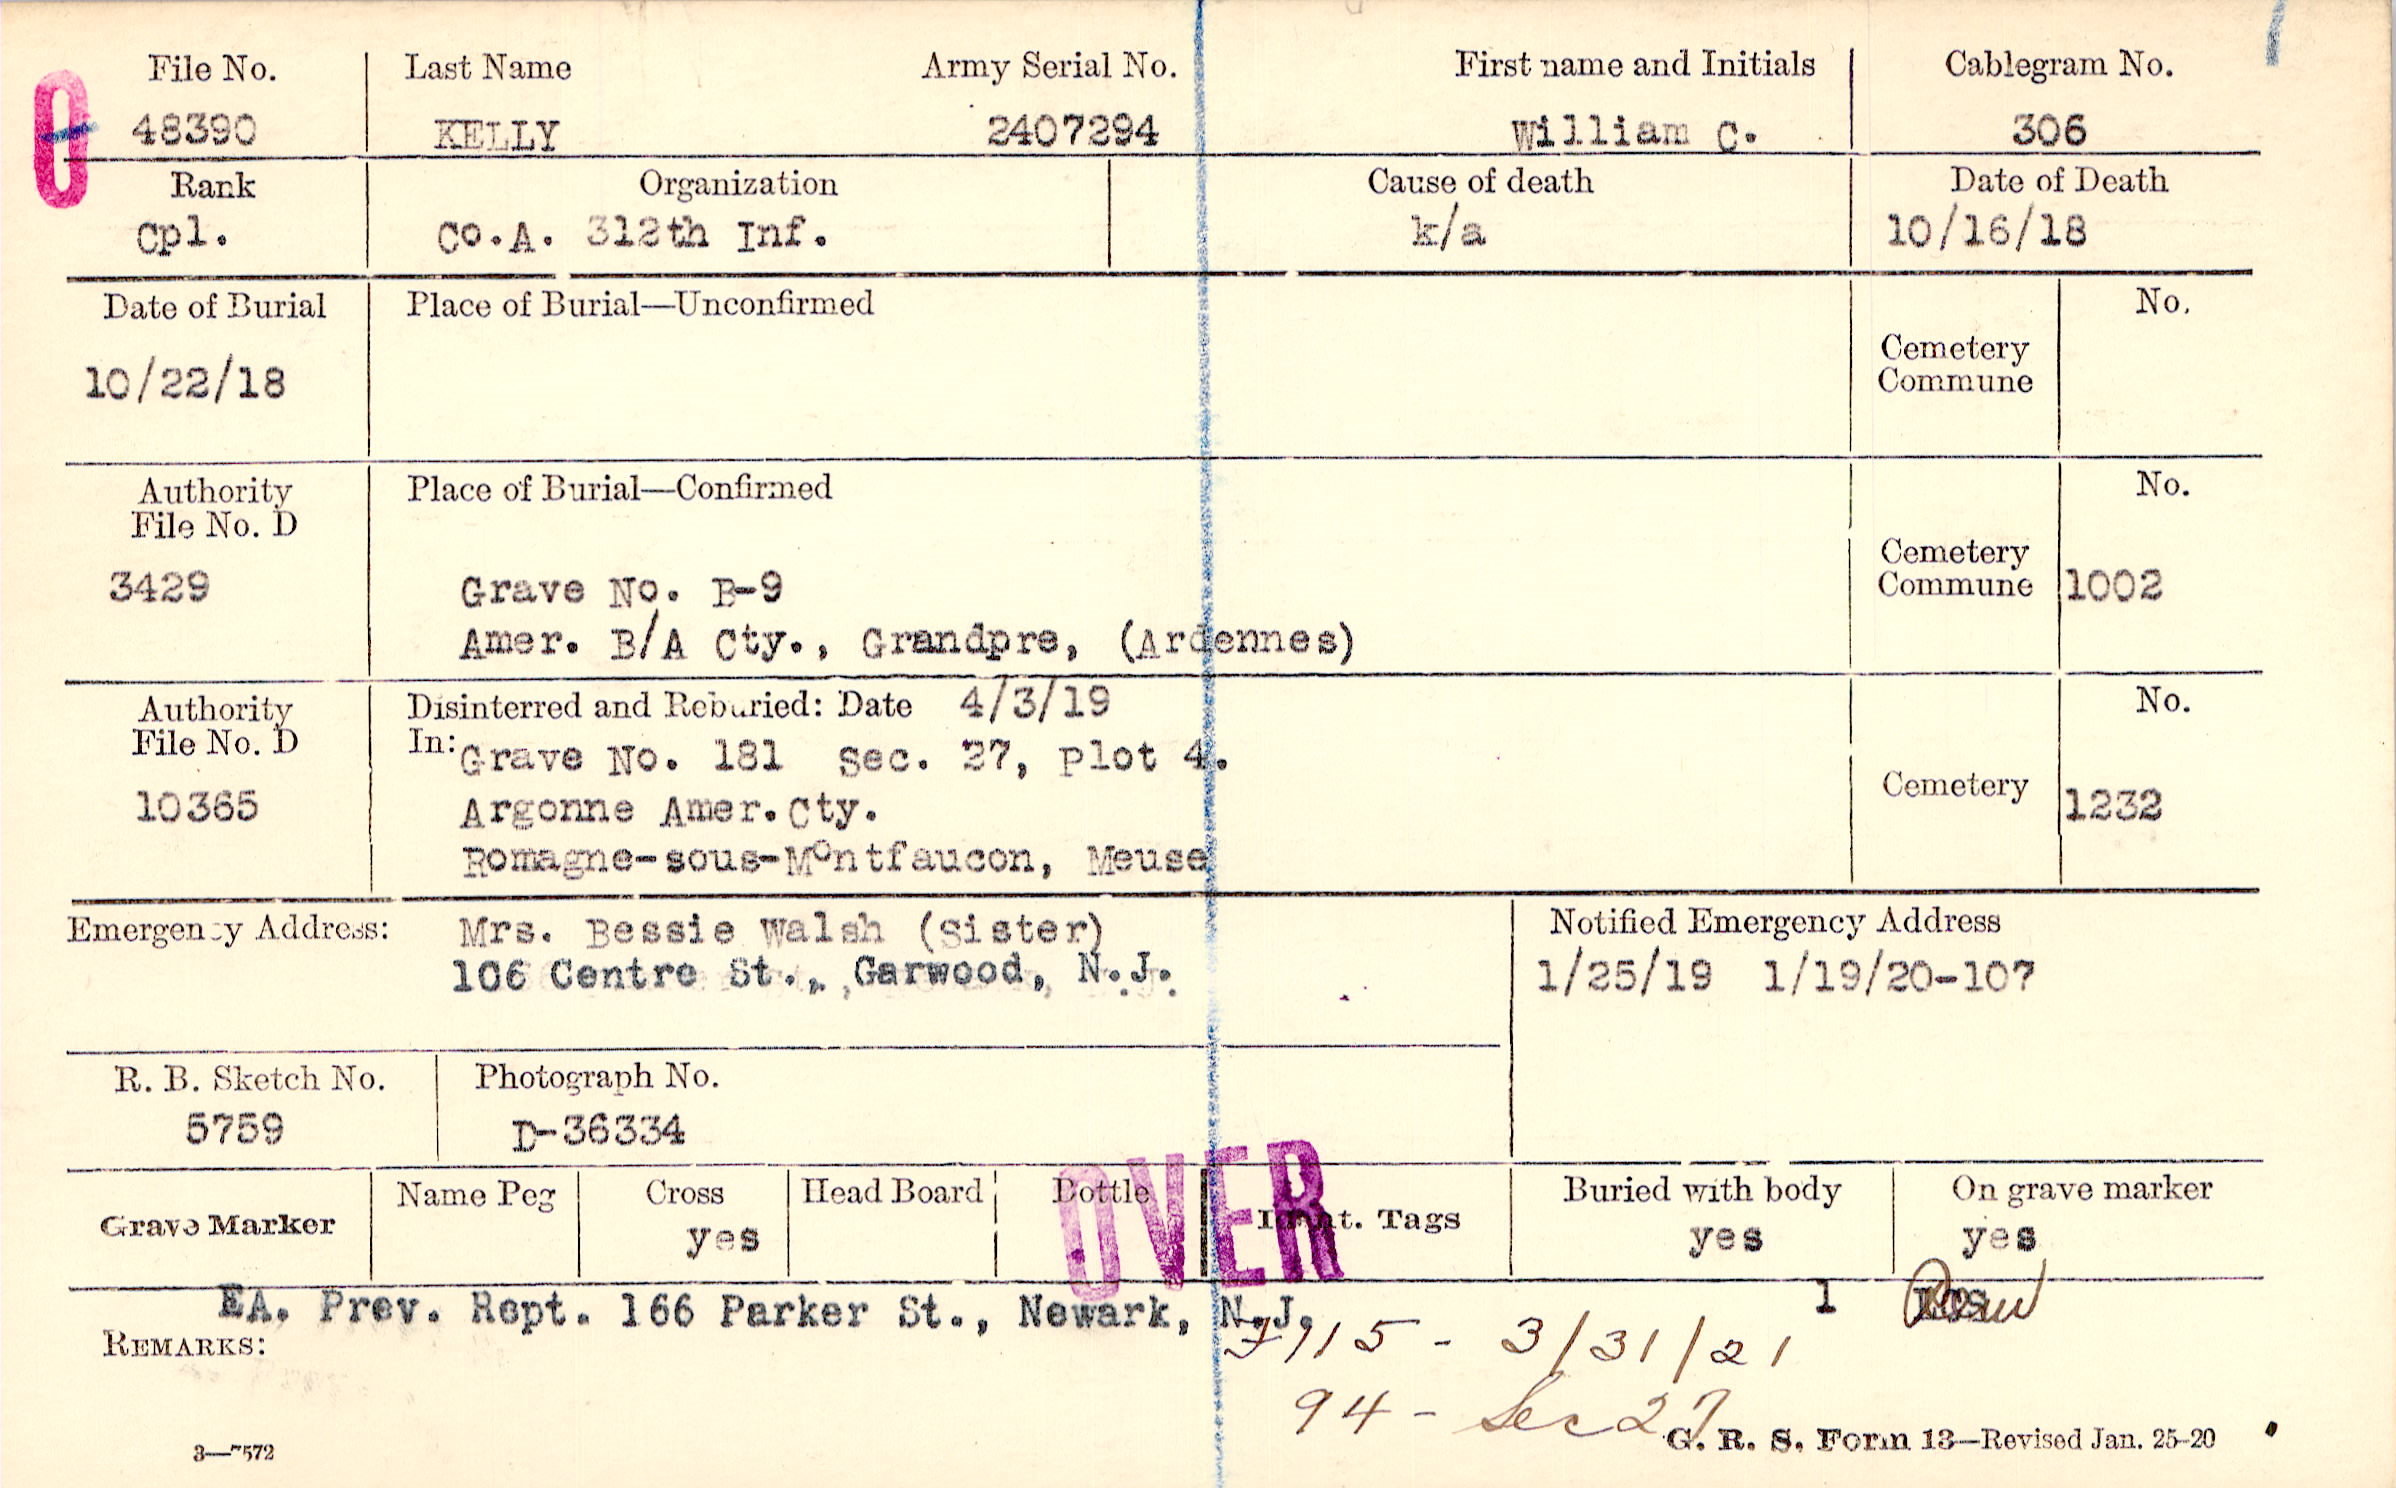 File No. Last Name Army Serial No. First name and Initials Cablegram No.
48390 KELLY 2407294 William C. 306
Rank Organization Cause of death Date of Death
Cpl. Co.A. 312th Inf. k/a 10/16/18
Date of Burial Place of Burial—Unconfirmed No.
Cemetery
Commune
10/22/18
Authority Place of Burial—Confirmed No.
File No. D
Cemetery
3429 Grave No. B-9 Commune 1002
Amer. B/A Cty., Grandpre, (Ardennes)
Authority Disinterred and Reburied: Date 4/3/19 No.
File No. D In: Grave No. 181 Sec. 27, Plot 4.
10365 Argonne Amer.Cty. Cemetery 1232
Romagne-sous-Montfaucon, Meuse
Emergency Address: Mrs. Bessie Walsh (Sister) Notified Emergency Address
106 Centre St., Garwood, N.J. 1/25/19 1/19/20-107
R. B. Sketch No. Photograph No.
5759 D-36334
OVER
Grave Marker Name Peg Cross Head Board Bottle Ident. Tags Buried with body On grave marker
yes yes yes
EA. Prev. Rept. 166 Parker St., Newark, N.J. 1
REMARKS: 3/31/21
94 - Sec 27
3—7572 G. R. S. Form 13—Revised Jan. 25-20